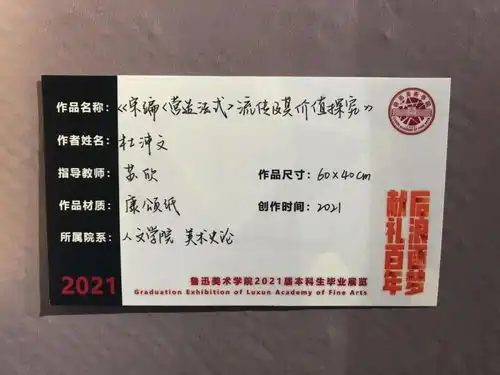 作品名称：《宋编<营造法式>流传及其价值探究》
作者姓名：杜沛文
指导教师：苗欣
作品尺寸：60×40cm
作品材质：康颂纸
创作时间：2021
所属院系：人文学院 美术史论
后浪圆梦
献礼百年
2021
鲁迅美术学院2021届本科生毕业展览
Graduation Exhibition of Luxun Academy of Fine Arts